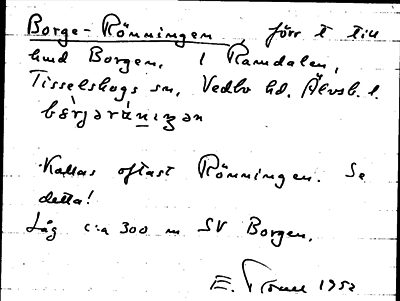 Borge-Rönningen, förr t till
hmd Borgen, i Ramdalen,
Tisselskogs sn, Vedbo hd, Älvsb. l.
bærjərönıŋən
Kallas oftast Rönningen. Se
detta!
Låg c:a 300 m SV Borgen.
E. 1952